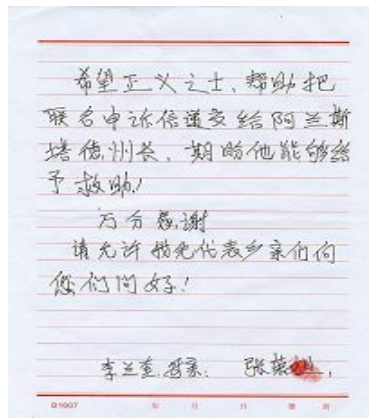 希望正义之士、帮助把
联名申诉信递交给阿兰斯
塔德州长、期盼他能够给
予救助!
万分感谢
请允许我先代表乡亲们向
您们问好!
李兰奎 母亲: 张
B1607 年 月 日 第 页